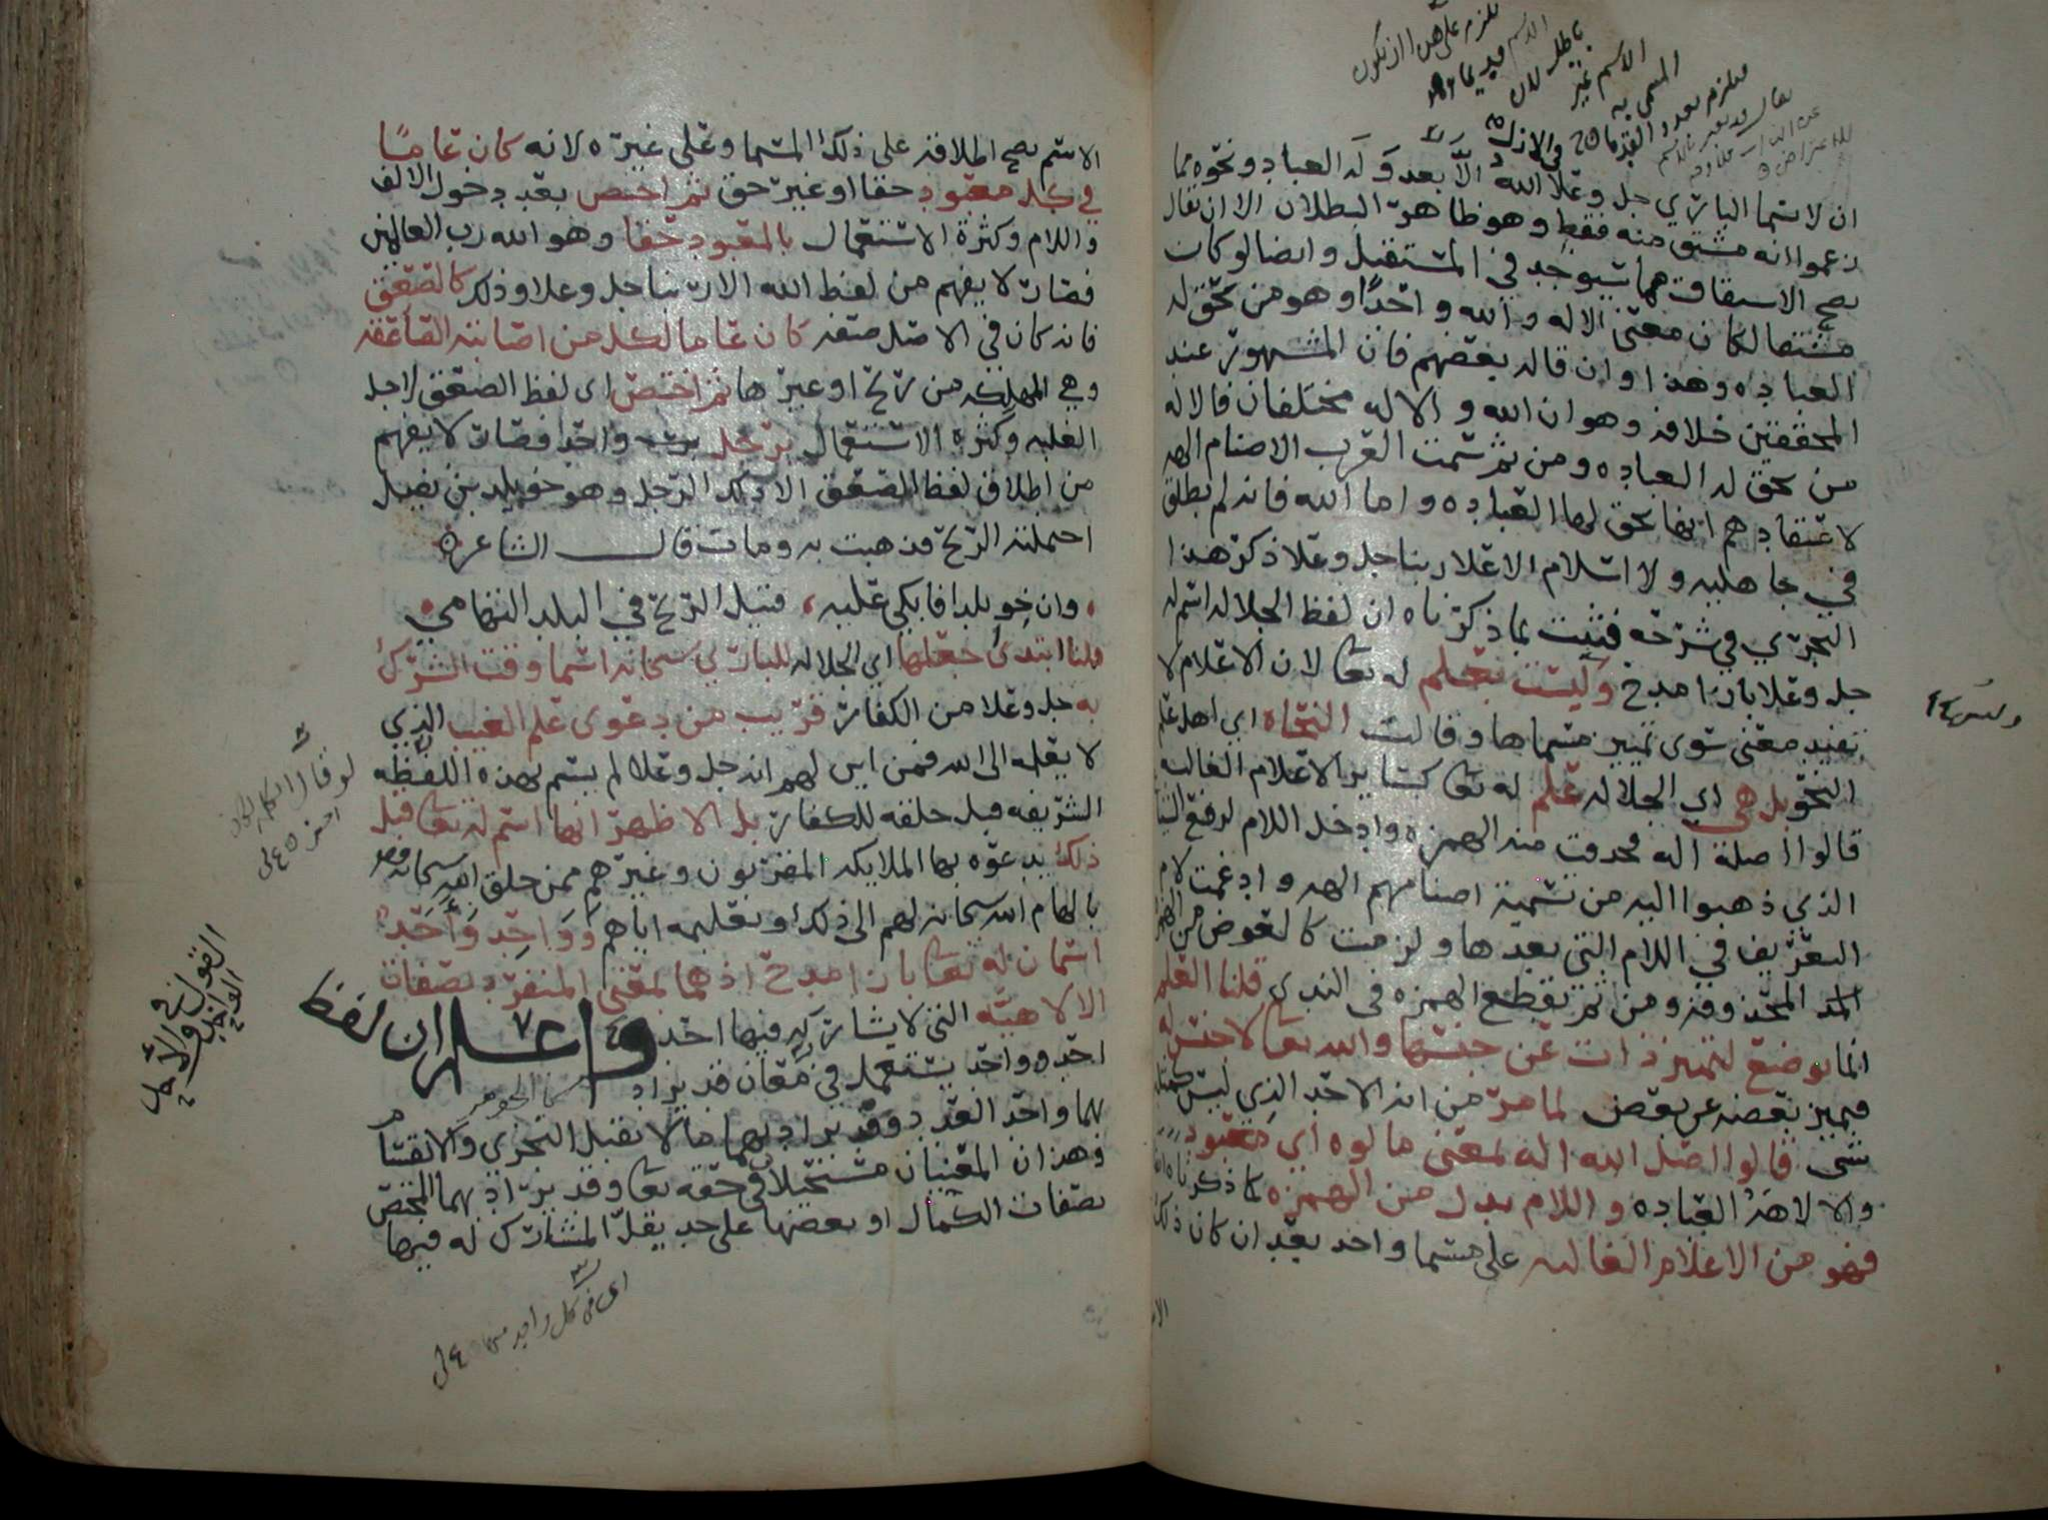 ان لا سما الباري جل وعلا الله الا بعد وله العباد ونحوه مما
زعموا انه مشتق منه فقط وهو ظاهر البطلان الا ان يقال
يصح الاشتقاق مما سيوجد في المستقبل وايضا لو كان
مشتقا لكان معنى الاله والله واحدا وهو من تحق له
العباده وهذا وان قاله بعضهم فان المشهور عند
المحققين خلافه وهو ان الله والاله مختلفان فالاله
من تحق له العباده ومن ثم سمت العرب الاصنام الهه
لاعتقادهم انها تحق لها العباده واما الله فانه لم يطلق
في جاهليه ولا اسلام الا على ربنا جل وعلا ذكر هذا
النجري في شرحه فثبت بما ذكرناه ان لفظ الجلاله اسم له
جل وعلا بازا مدح وليست بعلم له تعا لان الاعلام لا
تفيد معنى سوى تمييز مسماها وقالت النحاه اي اهل علم
النحو بل هي اي الجلاله علم له تعا كساير الاعلام الغالبه
قالوا اصله اله فحذفت منه الهمزه وادخل اللام لرفع الشياع
الذي ذهبوا اليه من تسمية اصنامهم الهه وادغمت لام
التعريف في اللام التي بعدها ولزمت كالعوض من الهمز
المحذوفه ومن ثم تقطع الهمزه في الندى قلنا العلم
انما يوضع لتمييز ذات عن جنسها والله تعا لا جنس له
فيميز بعضه عن بعض لما مر من انه الاحد الذي ليس كمثله
شي قالوا اصل الله اله بمعنى مالوه اي معبود
والالاهه العباده واللام بدل من الهمزه كما ذكرناه
فهو من الاعلام الغالبه على مسما واحد بعد ان كان ذلك
وليس
الاسم يصح اطلاقه على ذلك المسما وعلى غيره لانه كان عاما
في كل معبود حقا او غير حق ثم اختص بعد دخول الالف
واللام وكثرة الاستعمال بالمعبود حقا وهو الله رب العالمين
فصار لا يفهم من لفظ الله الا ربنا جل وعلا وذلك كالصعق
فانه كان في الاصل صفه كان عاما لكل من اصابته الصاعقه
وهي المهلكه من ريح او غيرها ثم اختص اي لفظ الصعق لاجل
الغلبه وكثره الاستعمال برجل واحد فصار لا يفهم
من اطلاق لفظ الصعق الا ذلك الرجل وهو خويلد بن نفيل
احتملته الريح فذهبت به ومات قال الشاعر
وان خويلدا فابكي عليه قتيل الريح في البلد التهامي
قلنا ابتدئ جعلها اي الجلاله للباري سبحانه اسما وقت الشرك
به جل وعلا من الكفار قريب من دعوى علم الغيب الذي
لا يعلمه الا الله فمن اين لهم انه جل وعلا لم يسم بهذه اللفظه
الشريفه قبل خلقه للكفار بل الاظهر انها اسم له تعا قبل
ذلك يدعوه بها الملايكه المقربون وغيرهم ممن خلق الله سبحانه
بالهام الله سبحانه لهم الى ذلك او تعليمه اياهم وواحد واحد
اسمان له تعا بازا مدح اذ هما بمعنى المنفرد بصفات
الالاهيه التي لا يشاركه فيها احد واعلم ان لفظ
احد وواحد يستعمل في معان قد يراد
بهما واحد العدد وقد يراد بهما ما لا يقبل التجزي والانقسام
وهذان المعنيان مستحيلان في حقه تعا وقد يراد بهما المختص
بصفات الكمال او بعضها على حد يقل المشارك له فيها
القول في
الواحد
والاحد
اي في كل واحد منها